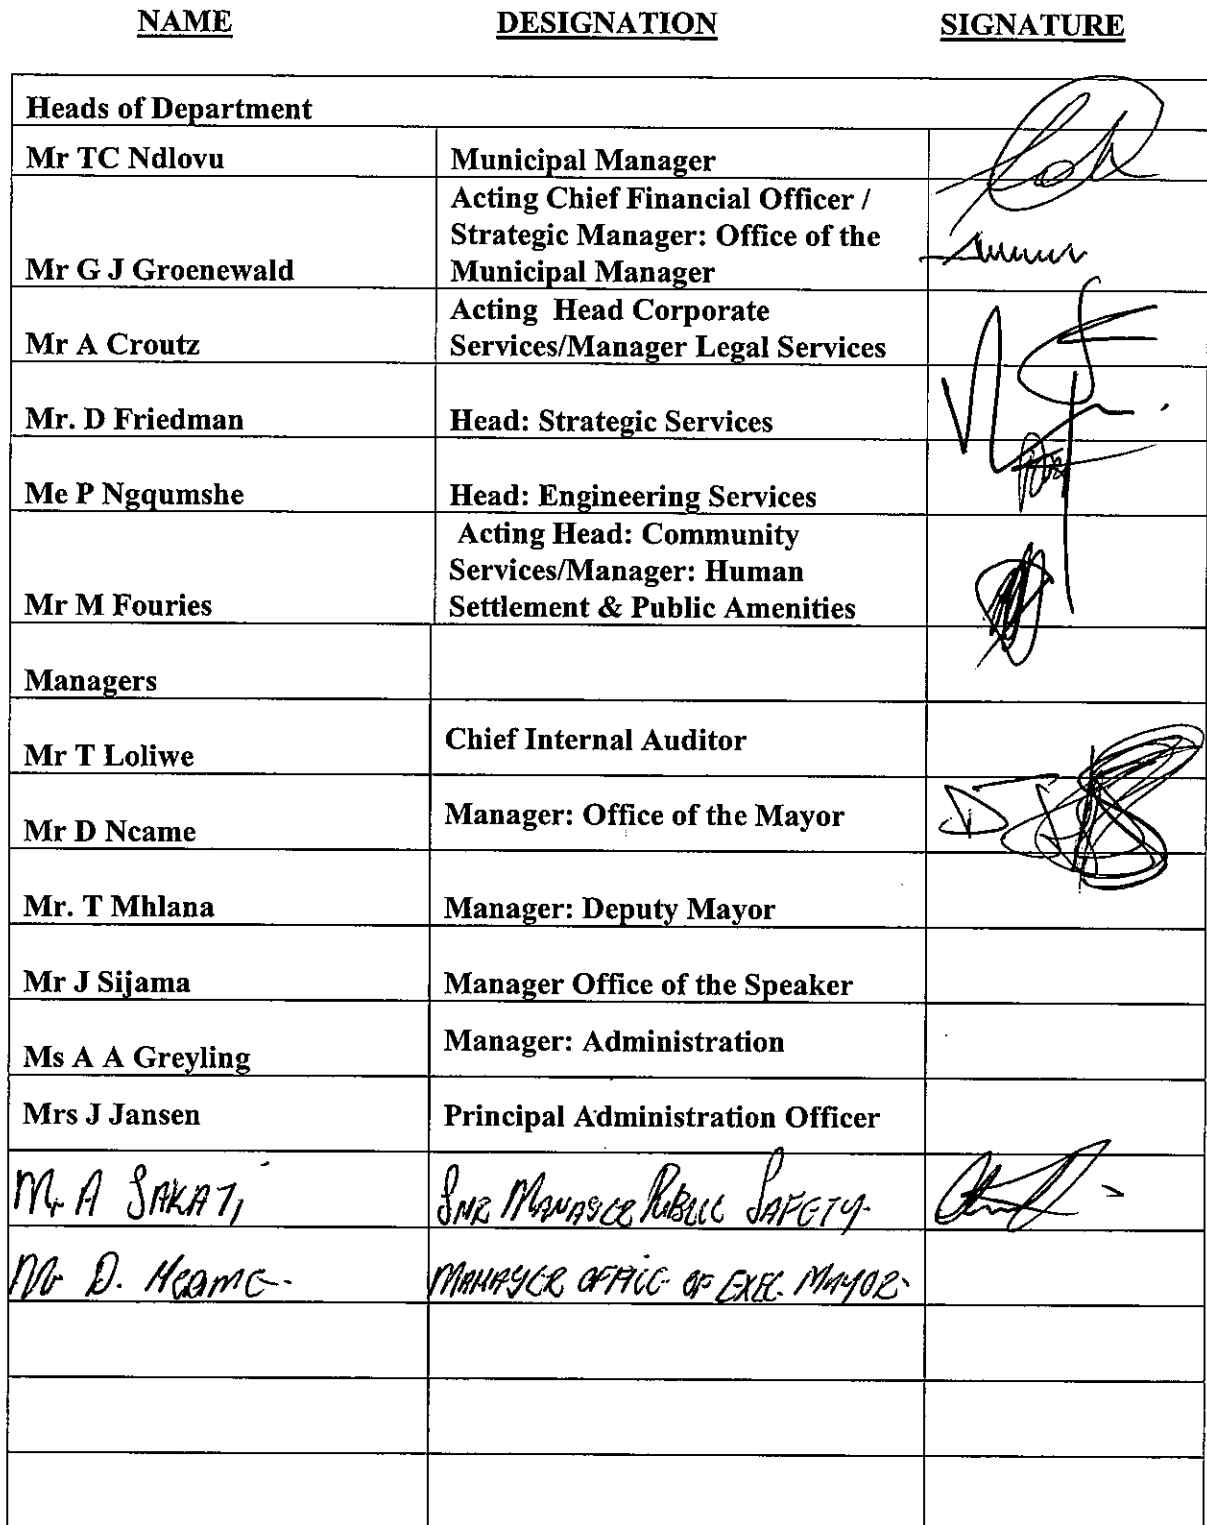 NAME DESIGNATION SIGNATURE
Heads of Department
Mr TC Ndlovu Municipal Manager
Acting Chief Financial Officer /
Strategic Manager: Office of the
Mr G J Groenewald Municipal Manager
Acting Head Corporate
Mr A Croutz Services/Manager Legal Services
Mr. D Friedman Head: Strategic Services
Me P Ngqumshe Head: Engineering Services
Acting Head: Community
Services/Manager: Human
Mr M Fouries Settlement & Public Amenities
Managers
Mr T Loliwe Chief Internal Auditor
Mr D Ncame Manager: Office of the Mayor
Mr. T Mhlana Manager: Deputy Mayor
Mr J Sijama Manager Office of the Speaker
Ms A A Greyling Manager: Administration
Mrs J Jansen Principal Administration Officer
Mr A SAKATI SNR MANAGER PUBLIC SAFETY.
Mr D. MANAGER OFFICE OF EXEC. MAYOR.